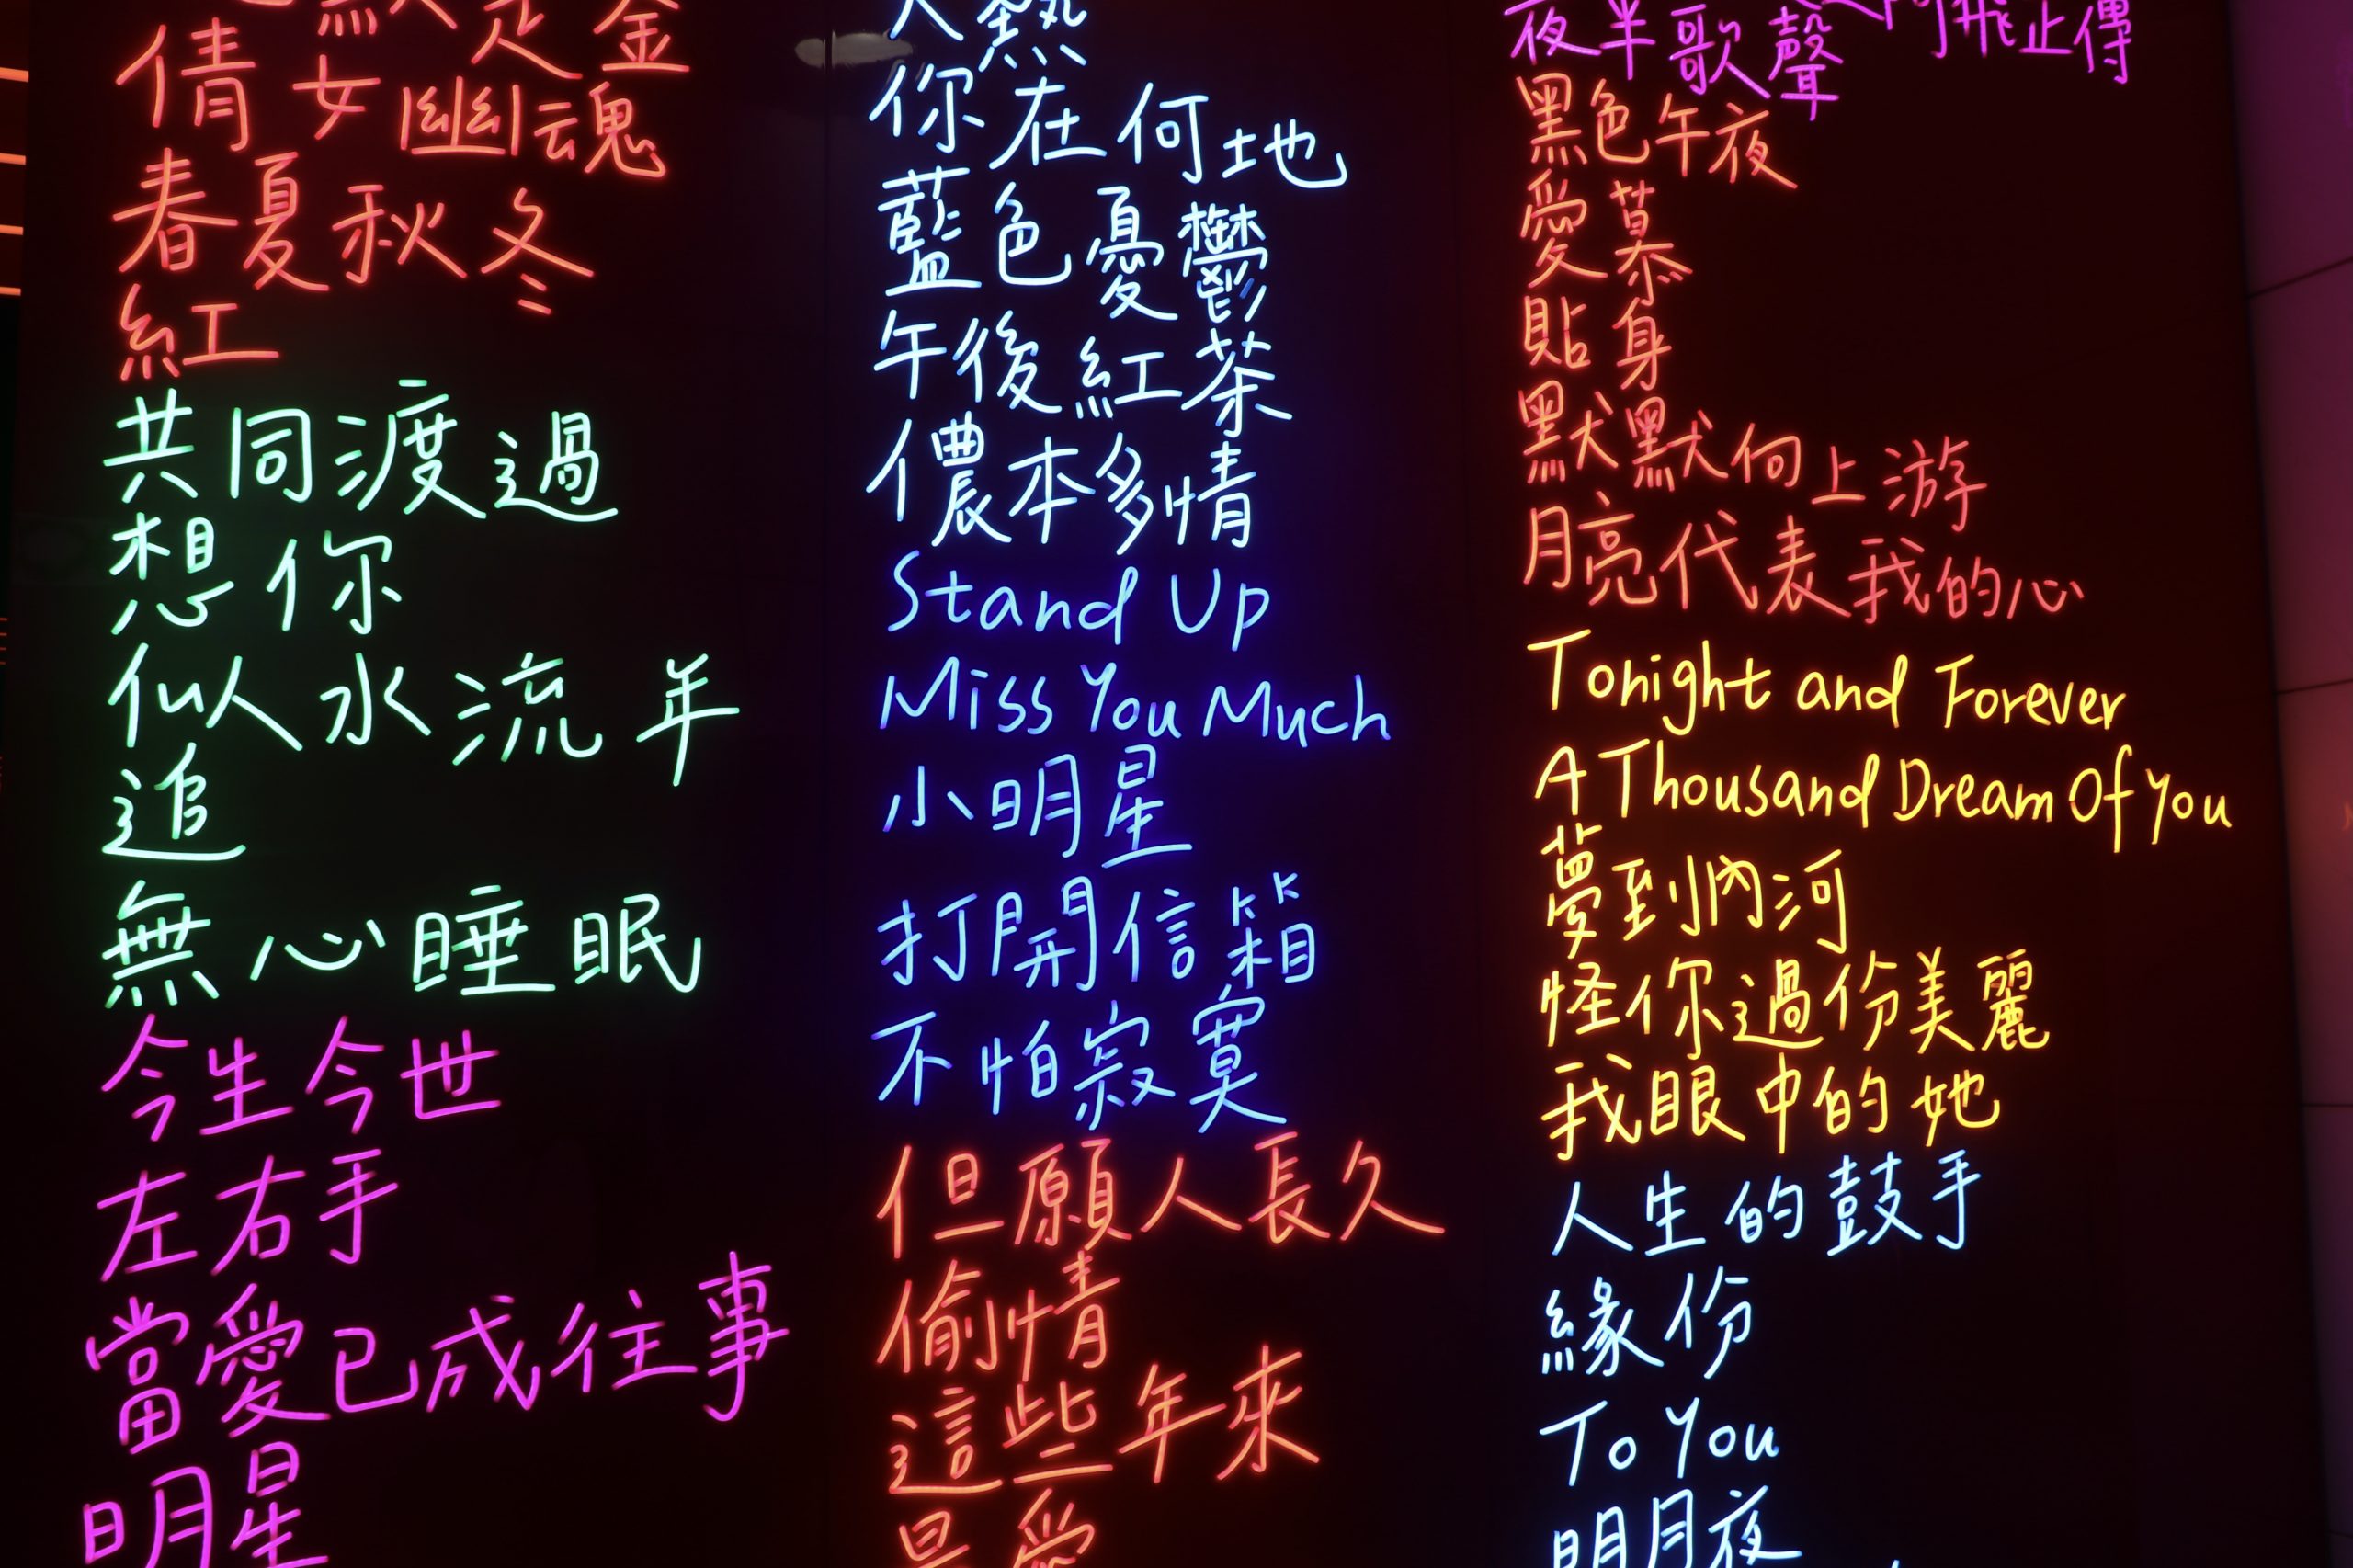 默是金
倩女幽魂
春夏秋冬
紅
共同渡過
想你
似水流年
追
無心睡眠
今生今世
左右手
當愛已成往事
明星
熱
你在何地
藍色憂鬱
午後紅茶
儂本多情
Stand Up
Miss You Much
小明星
打開信箱
不怕寂寞
但願人長久
偷情
這些年來
最愛
夜半歌聲
飛止傳
黑色午夜
愛慕
貼身
默默向上游
月亮代表我的心
Tonight and Forever
A Thousand Dream Of You
夢到內河
怪你過份美麗
我眼中的她
人生的鼓手
緣份
To You
明月夜